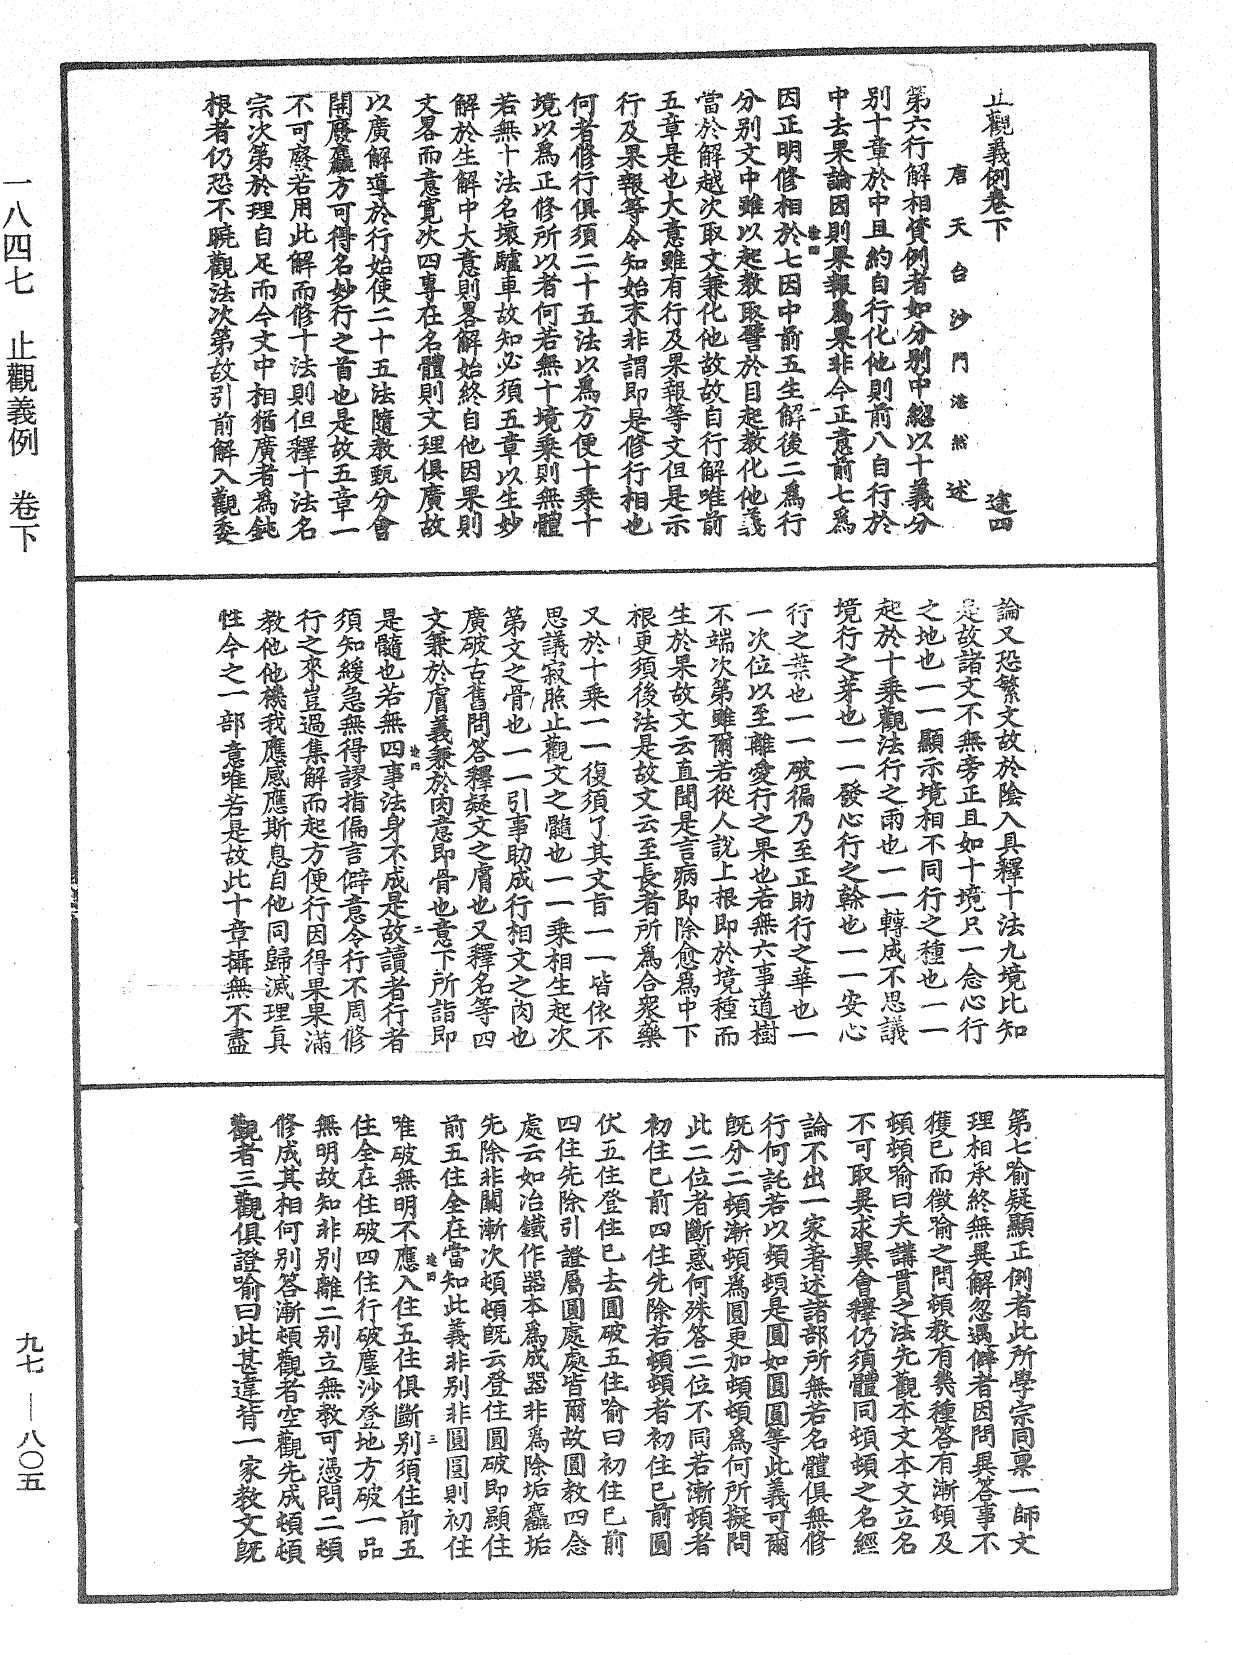 止觀義例卷下
遠四
唐天台沙門湛然述
第六行解相資例者如分別中總以十義分
別十章於中且約自行化他則前八自行於
中去果論因則果報爲果非今正意前七爲
因正明修相於七因中前五生解後二爲行
分別文中雖以起教取譬於目起教化他義
當於解越次取文兼化他故故自行解唯前
五章是也大意雖有行及果報等文但是示
行及果報等令知始末非謂即是修行相也
何者修行俱須二十五法以爲方便十乘十
境以爲正修所以者何若無十境乘則無體
若無十法名壞驢車故知必須五章以生妙
解於生解中大意則畧解始終自他因果則
文畧而意寛次四專在名體則文理俱廣故
以廣解導於行始使二十五法隨教甄分會
開廢麤方可得名妙行之首也是故五章一
不可廢若用此解而修十法則但釋十法名
宗次第於理自足而今文中相猶廣者爲鈍
根者仍恐不曉觀法次第故引前解入觀委
論又恐繁文故於陰入具釋十法九境比知
是故諸文不無旁正且如十境只一念心行
之地也一一顯示境相不同行之種也一一
起於十乘觀法行之雨也一一轉成不思議
境行之芽也一一發心行之幹也一一安心
行之葉也一一破徧乃至正助行之華也一
一次位以至離愛行之果也若無六事道樹
不端次第雖爾若從人說上根即於境種而
生於果故文云直聞是言病即除愈爲中下
根更須後法是故文云至長者所爲合衆藥
又於十乘一一復須了其文旨一一皆依不
思議寂照止觀文之髓也一一乘相生起次
第文之骨也一一引事助成行相文之肉也
廣破古舊問答釋疑文之膚也又釋名等四
文兼於膚義兼於肉意即骨也意下所詣即
是髓也若無四事法身不成是故讀者行者
須知緩急無得謬指偏言僻意令行不周修
行之來豈過集解而起方便行因得果果滿
教他他機我應感應斯息自他同歸滅理真
性今之一部意唯若是故此十章攝無不盡
第七喻疑顯正例者此所學宗同禀一師文
理相承終無異解忽遇僻者因問異答事不
獲已而徵喻之問頓教有幾種答有漸頓及
頓頓喻曰夫講貫之法先觀本文本文立名
不可取異求異會釋仍須體同頓頓之名經
論不出一家著述諸部所無若名體俱無修
行何託若以頓頓是圓如圓圓等此義可爾
既分二頓漸頓爲圓更加頓頓爲何所擬問
此二位者斷惑何殊答二位不同若漸頓者
初住已前四住先除若頓頓者初住已前圓
伏五住登住已去圓破五住喻曰初住已前
四住先除引證屬圓處處皆爾故圓教四念
處云如冶鐵作器本爲成器非爲除垢麤垢
先除非關漸次頓頓既云登住圓破即顯住
前五住全在當知此義非別非圓圓則初住
唯破無明不應入住五住俱斷別須住前五
住全在住破四住行破塵沙登地方破一品
無明故知非別離二別立無教可憑問二頓
修成其相何別答漸頓觀者空觀先成頓頓
觀者三觀俱證喻曰此甚違背一家教文既
一八四七　止觀義例　卷下
九七—八〇五